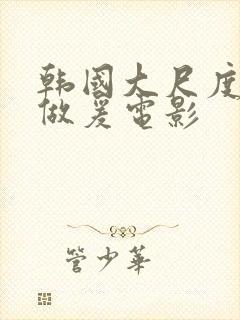 韩國大尺度
做爰電影
管少華